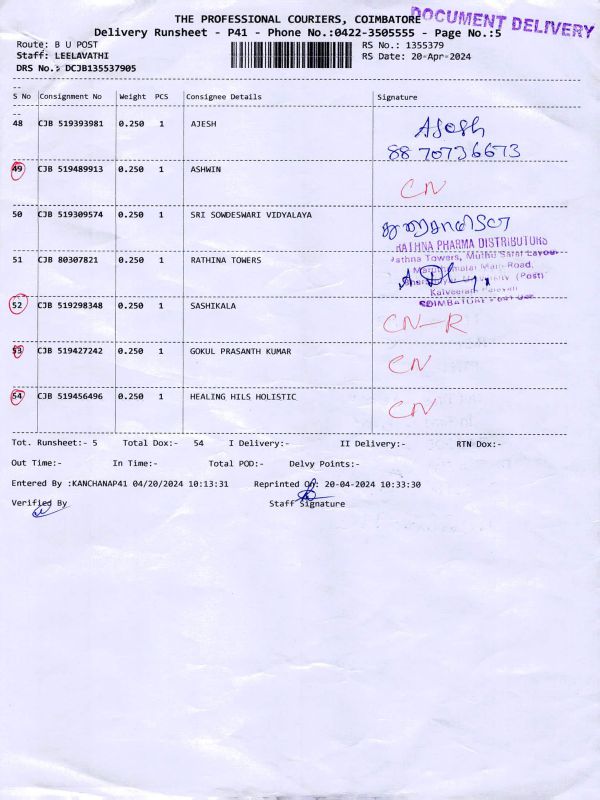 DOCUMENT DELIVERY
THE PROFESSIONAL COURIERS, COIMBATORE
Delivery Runsheet - P41 - Phone No.:0422-3505555 - Page No.:5
Route: B U POST RS No.: 1355379
Staff: LEELAVATHI RS Date: 20-Apr-2024
DRS No.: DCJB135537905
S No Consignment No Weight PCS Consignee Details Signature
48 CJB 519393981 0.250 1 AJESH Ajesh
8870736673
49 CJB 519489913 0.250 1 ASHWIN CN
50 CJB 519309574 0.250 1 SRI SOWDESWARI VIDYALAYA
RATHNA PHARMA DISTRIBUTORS
51 CJB 80307821 0.250 1 RATHINA TOWERS Rathna Towers, Muthu Saraf Layout
Main Road,
University (Post)
COIMBATORE
52 CJB 519298348 0.250 1 SASHIKALA CN-R
53 CJB 519427242 0.250 1 GOKUL PRASANTH KUMAR CN
54 CJB 519456496 0.250 1 HEALING HILS HOLISTIC CN
Tot. Runsheet:- 5 Total Dox:- 54 I Delivery:- II Delivery:- RTN Dox:-
Out Time:- In Time:- Total POD:- Delvy Points:-
Entered By :KANCHANAP41 04/20/2024 10:13:31 Reprinted On: 20-04-2024 10:33:30
Verified By Staff Signature